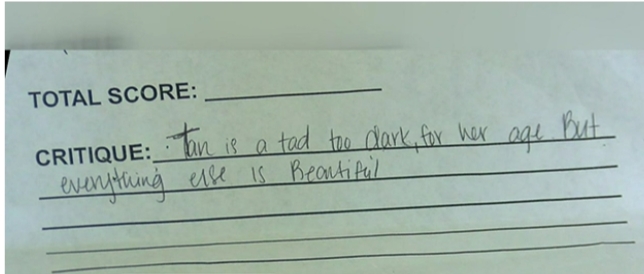 TOTAL SCORE:
CRITIQUE: Tan is a tad too dark, for her age But
everything else is Beautiful